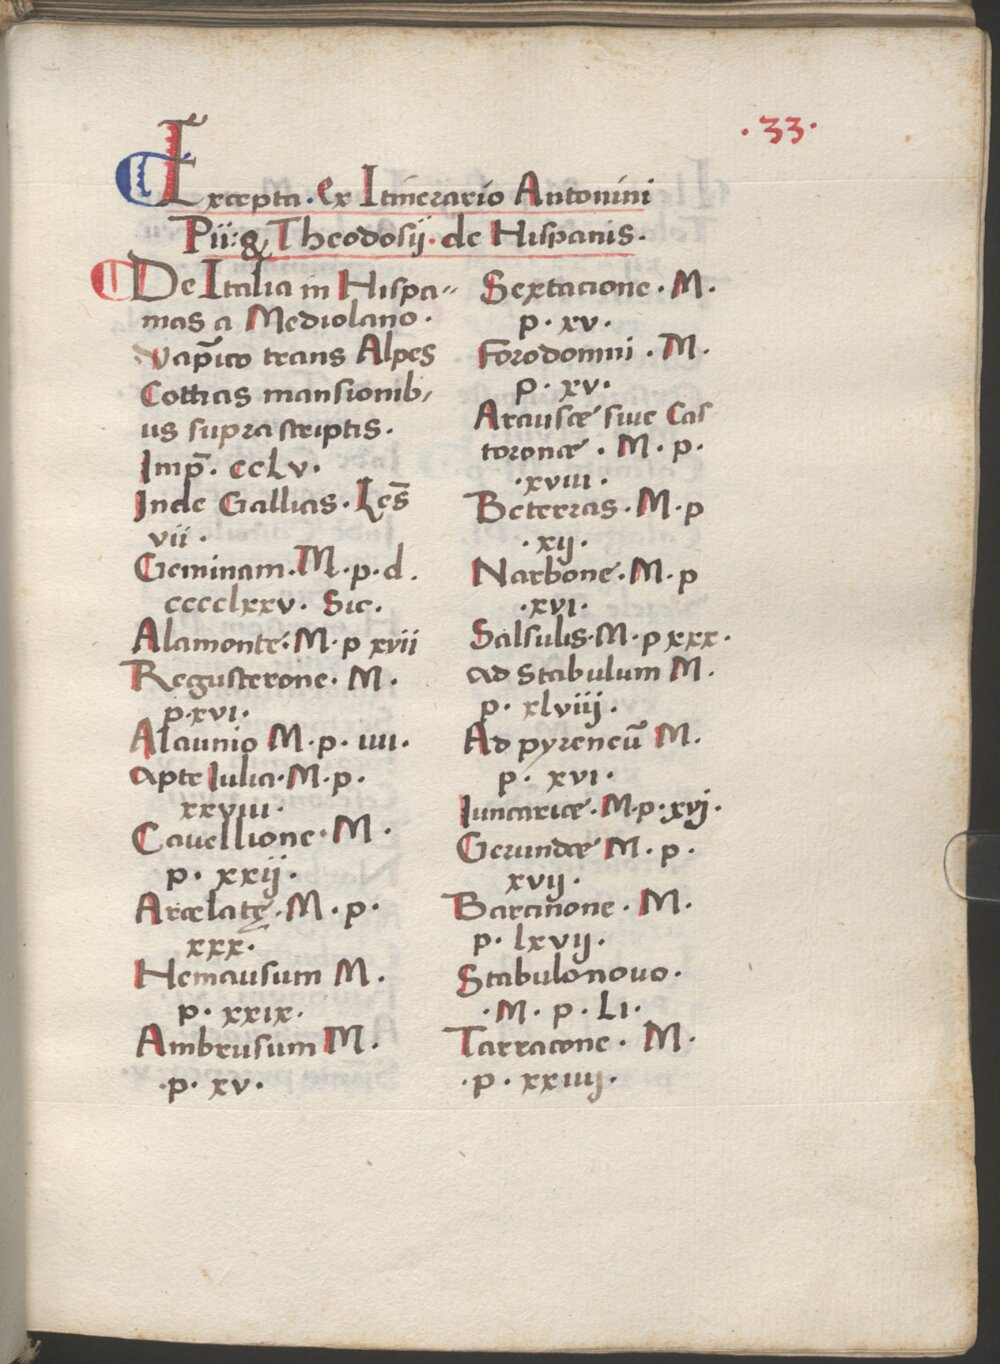 ·33·
Excepta·ex Itinerario Antonini
Pii:& Theodosij·de Hispanis·
De Italia in Hispa-
nias a Mediolano·
vap̃ico trans Alpes
Cottias mansionib,
us supra scriptis·
Imp̃· ccLv·
Inde Gallias· Les̃
vii·
Geminam·M·p·d·
cccclxxv· Sic·
Alamonte·M·p xvii
Regusterone· M·
p·xvi·
Alaunio M·p·iiii·
Apte Iulia·M·p·
xxviii·
Cavellione·M·
p· xxij·
Arælatę·M·p·
xxx·
Hemausum M·
p· xxix·
Ambrusum M·
·p· xv·
Sextacione·M·
p·xv·
Forodomni·M·
p·xv·
Arauscæ siue Cas
toronæ·M·p·
·xviii·
Beterras·M·p
·xij·
Narbone·M·p
·xvi·
Salsulis·M·p xxx·
ad Stabulum M·
p· xlviij·
Ad pyreneũ M·
p· xvi·
Iuncariæ·M·p·xvj·
Gerundæ M·p·
xvij·
Barcinone·M·
p· lxvij·
Stabulonouo·
·M·p·Li·
Tarracone·M·
·p· xxiiij·